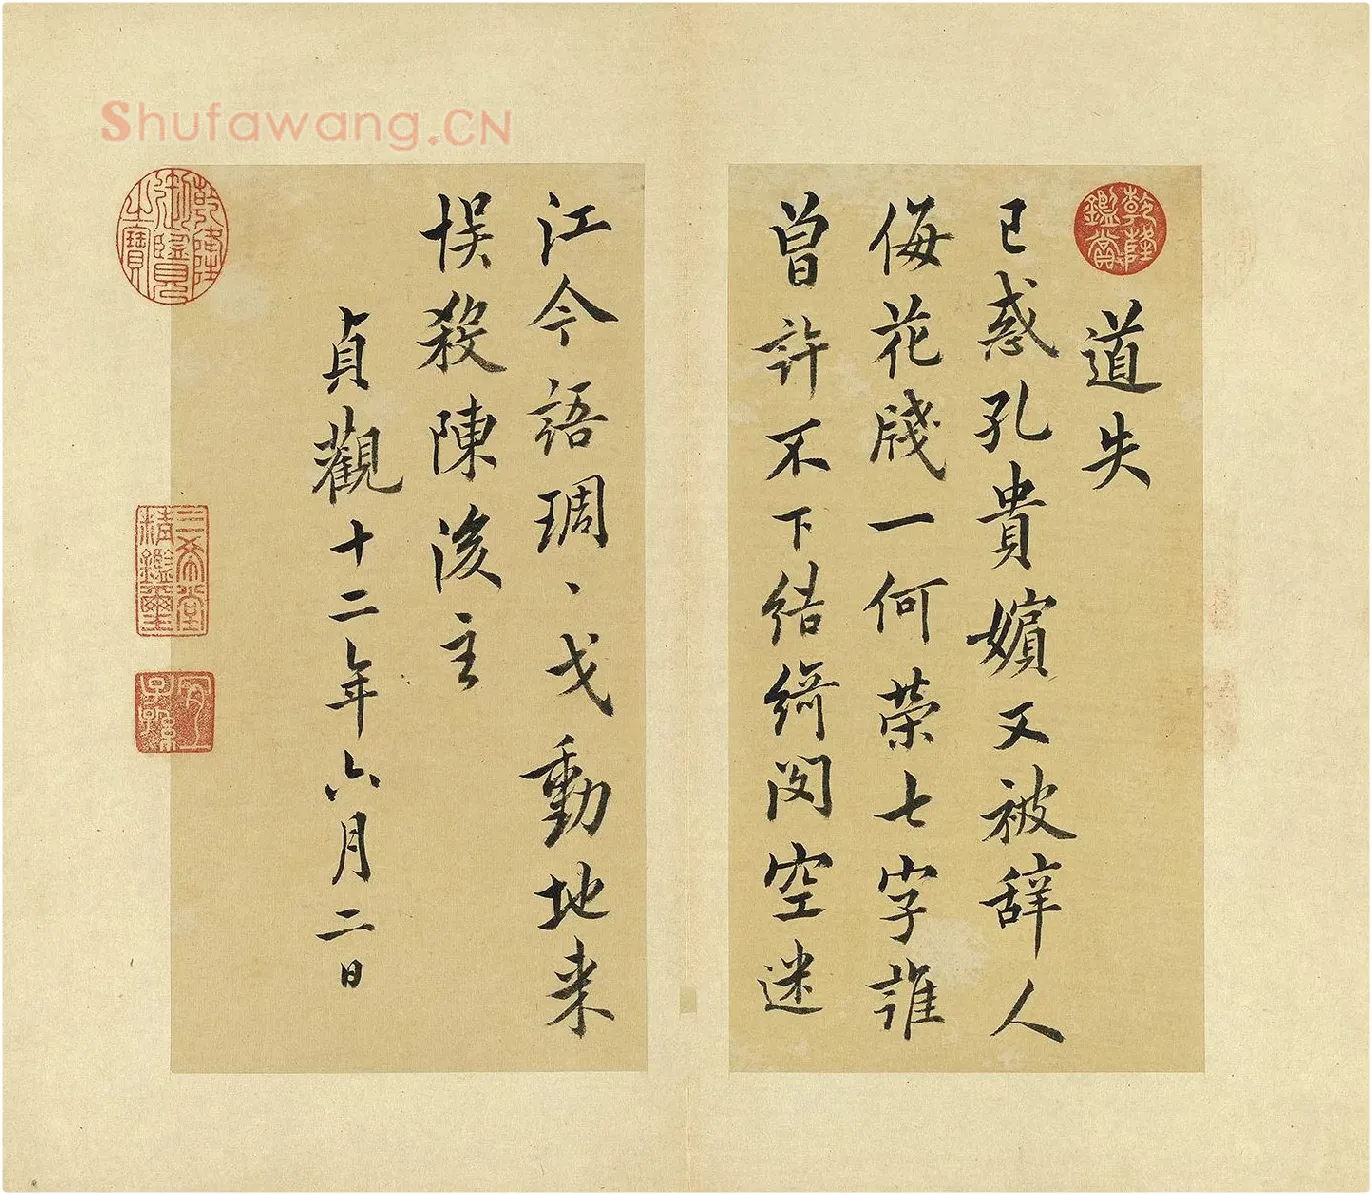 Shufawang.CN
乾隆鑑賞
道失
已惑孔貴嬪又被辞人
侮花牋一何榮七字誰
曾許不下結綺閣空迷
江令語琱、戈動地来
悮殺陳後主
貞觀十二年六月二日
乾隆御覽之寶
三希堂精鑑璽
宜子孫